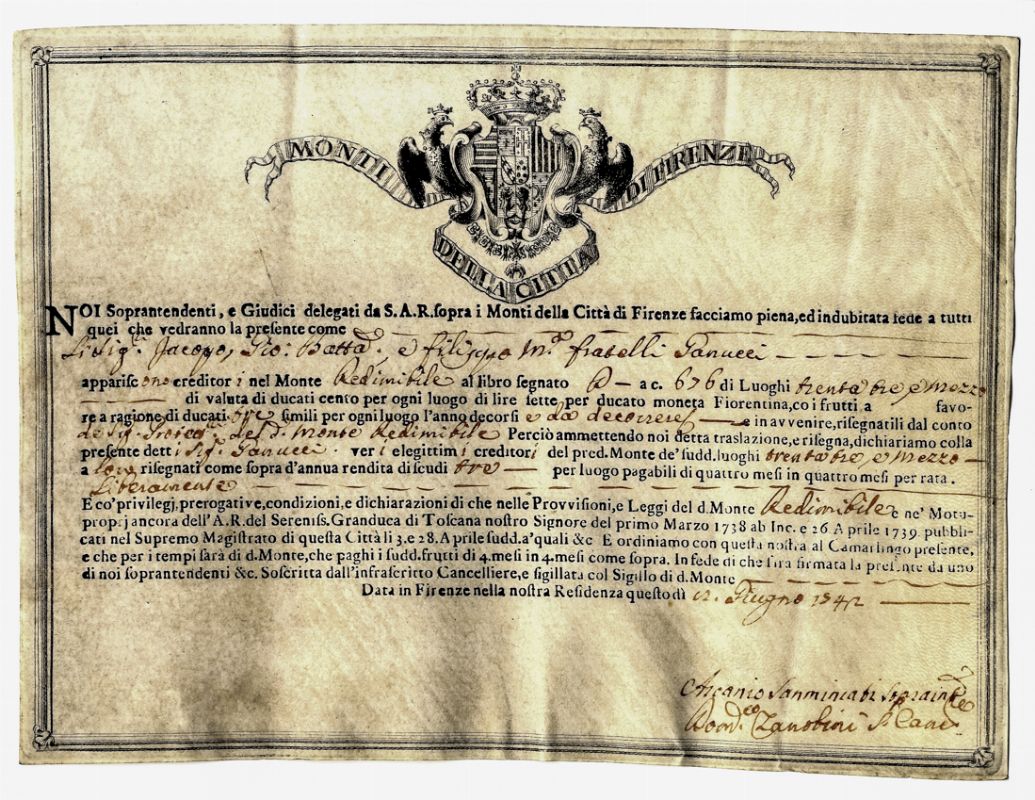 MONTI
DI FIRENZE
DELLA CITTA
NOI Soprantendenti, e Giudici delegati da S.A.R. sopra i Monti della Città di Firenze facciamo piena, ed indubitata fede a tutti
quei che vedranno la presente come
Li Sig.ri Jacopo, Gio: Batta, e Filippo M.a fratelli Panucci
apparisc ono creditor i nel Monte Redimibile al libro segnato a c. 676 di Luoghi trenta tre, e mezzo
di valuta di ducati cento per ogni luogo di lire sette per ducato moneta Fiorentina, co i frutti a favo-
re a ragione di ducati tre simili per ogni luogo l'anno decorsi e da decorrere e in avvenire, risegnatili dal conto
de Sig. del d. Monte Redimibile Perciò ammettendo noi detta traslazione, e risegna, dichiariamo colla
presente dett i Sig.ri Panucci ver i e legittim i creditor i del pred. Monte de' sudd. luoghi trenta tre, e mezzo
a loro risegnati come sopra d'annua rendita di scudi tre per luogo pagabili di quattro mesi in quattro mesi per rata.
Liberamente
E co' privilegj, prerogative, condizioni, e dichiarazioni di che nelle Provvisioni, e Leggi del d. Monte Redimibile e ne' Motu-
proprj ancora dell'A.R. del Sereniss. Granduca di Toscana nostro Signore del primo Marzo 1738 ab Inc. e 26 Aprile 1739. pubbli-
cati nel Supremo Magistrato di questa Città li 3. e 28. Aprile sudd. a' quali &c E ordiniamo con questa nostra al Camarlingo presente,
e che per i tempi sarà di d. Monte, che paghi i sudd. frutti di 4. mesi in 4. mesi come sopra. In fede di che sira firmata la presente da uno
di noi soprantendenti &c. Soscritta dall'infrascritto Cancelliere, e sigillata col Sigillo di d. Monte
Data in Firenze nella nostra Residenza questo dì 12. Giugno
Ascanio Sanminiati
Dom.co Zanobini